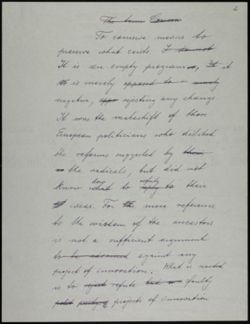 To conserve means to
preserve what exists. I do not
It is an empty program, if it
is merely opposed to a merely
negative, rejecting any change
It was the makeshift of those
European politicians who disliked
the reforms suggested by them
the radicals, but did not
know what to reply to their
ideas. For the mere reference
to the wisdom of the ancestors
is not a sufficient argument
to be advanced against any
project of innovation. What is needed
is to refute faulty
projects of innovation